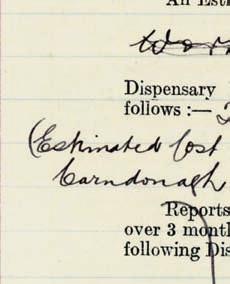 An Esti
Dispensary
follows :—
(Estimated Cost
Carndonagh
Reports
over 3 mont
following Dis